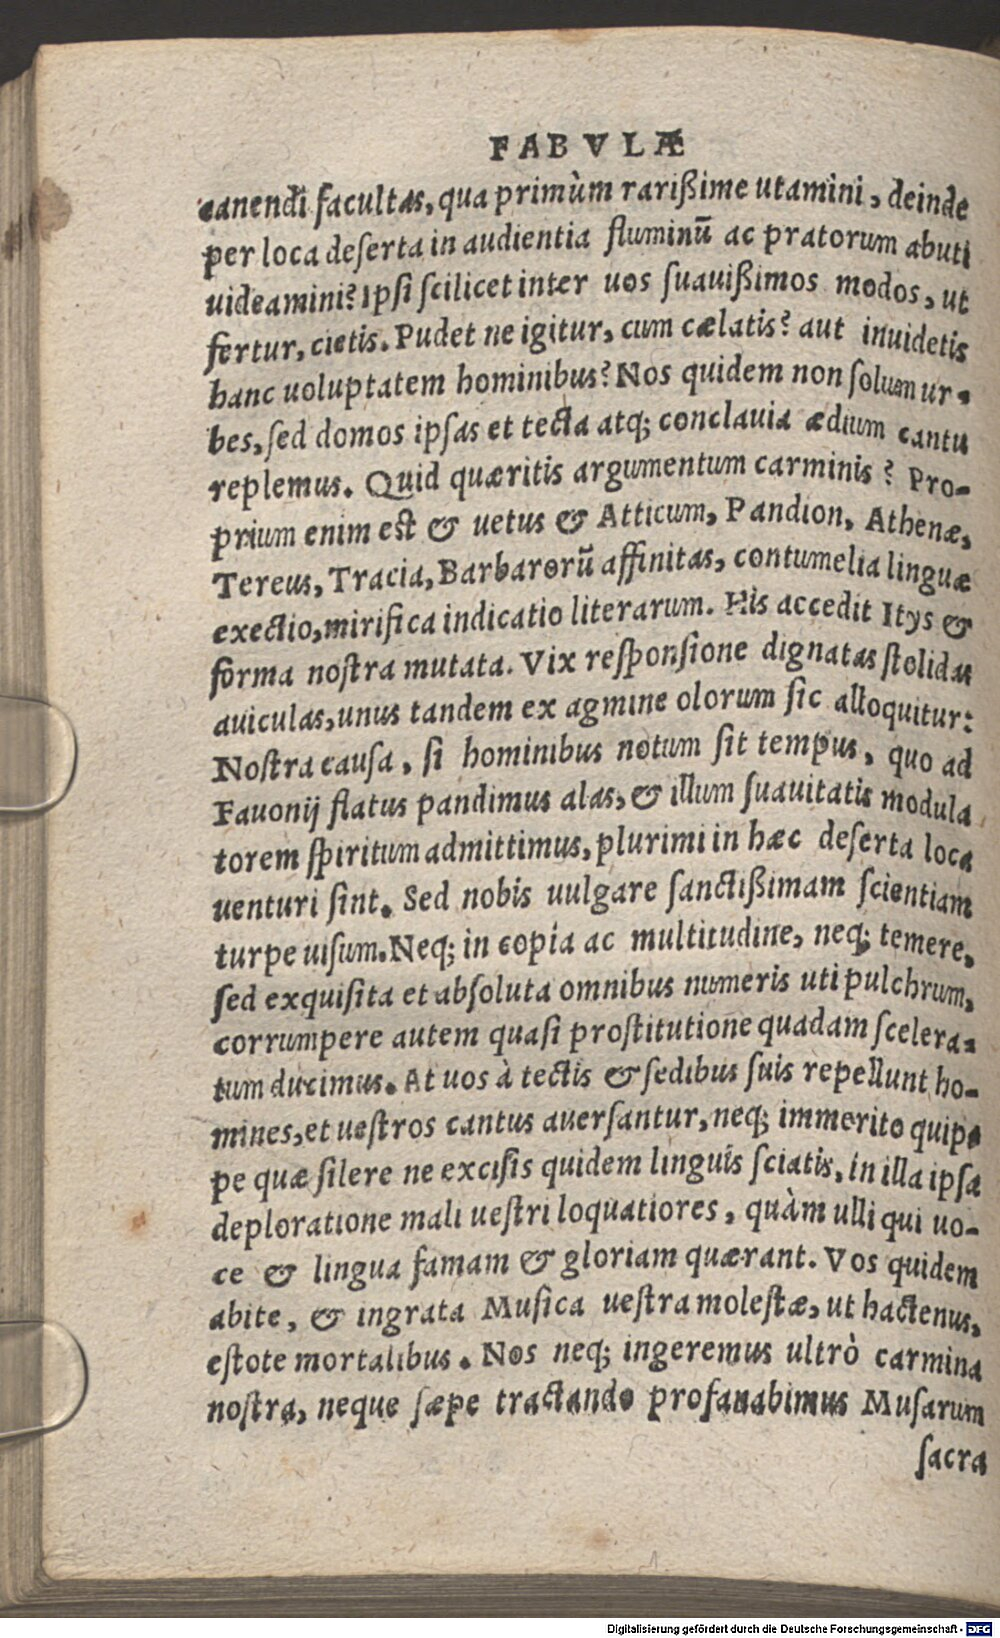 FABVLÆ
canendi facultas, qua primùm rarißime utamini, deinde
per loca deserta in audientia fluminũ ac pratorum abuti
uideamini? Ipsi scilicet inter uos suauißimos modos, ut
fertur, cietis. Pudet ne igitur, cum cælatis? aut inuidetis
hanc uoluptatem hominibus? Nos quidem non solum ur-
bes, sed domos ipsas et tecta atq; conclauia ædium cantu
replemus. Quid quæritis argumentum carminis? Pro-
prium enim est & uetus & Atticum, Pandion, Athenæ,
Tereus, Tracia, Barbarorũ affinitas, contumelia linguæ
exectio, mirifica indicatio literarum. His accedit Itys &
forma nostra mutata. Vix responsione dignatas stolidas
auiculas, unus tandem ex agmine olorum sic alloquitur:
Nostra causa, si hominibus notum sit tempus, quo ad
Fauonij flatus pandimus alas, & illum suauitatis modula
torem spiritum admittimus, plurimi in hæc deserta loca
uenturi sint. Sed nobis uulgare sanctißimam scientiam
turpe uisum. Neq; in copia ac multitudine, neq; temere,
sed exquisita et absoluta omnibus numeris uti pulchrum,
corrumpere autem quasi prostitutione quadam scelera-
tum ducimus. At uos à tectis & sedibus suis repellunt ho-
mines, et uestros cantus auersantur, neq; immerito quip-
pe quæ silere ne excisis quidem linguis sciatis, in illa ipsa
deploratione mali uestri loquatiores, quàm ulli qui uo-
ce & lingua famam & gloriam quærant. Vos quidem
abite, & ingrata Musica uestra molestæ, ut hactenus,
estote mortalibus. Nos neq; ingeremus ultrò carmina
nostra, neque sæpe tractando profanabimus Musarum
sacra
Digitalisierung gefördert durch die Deutsche Forschungsgemeinschaft - DFG